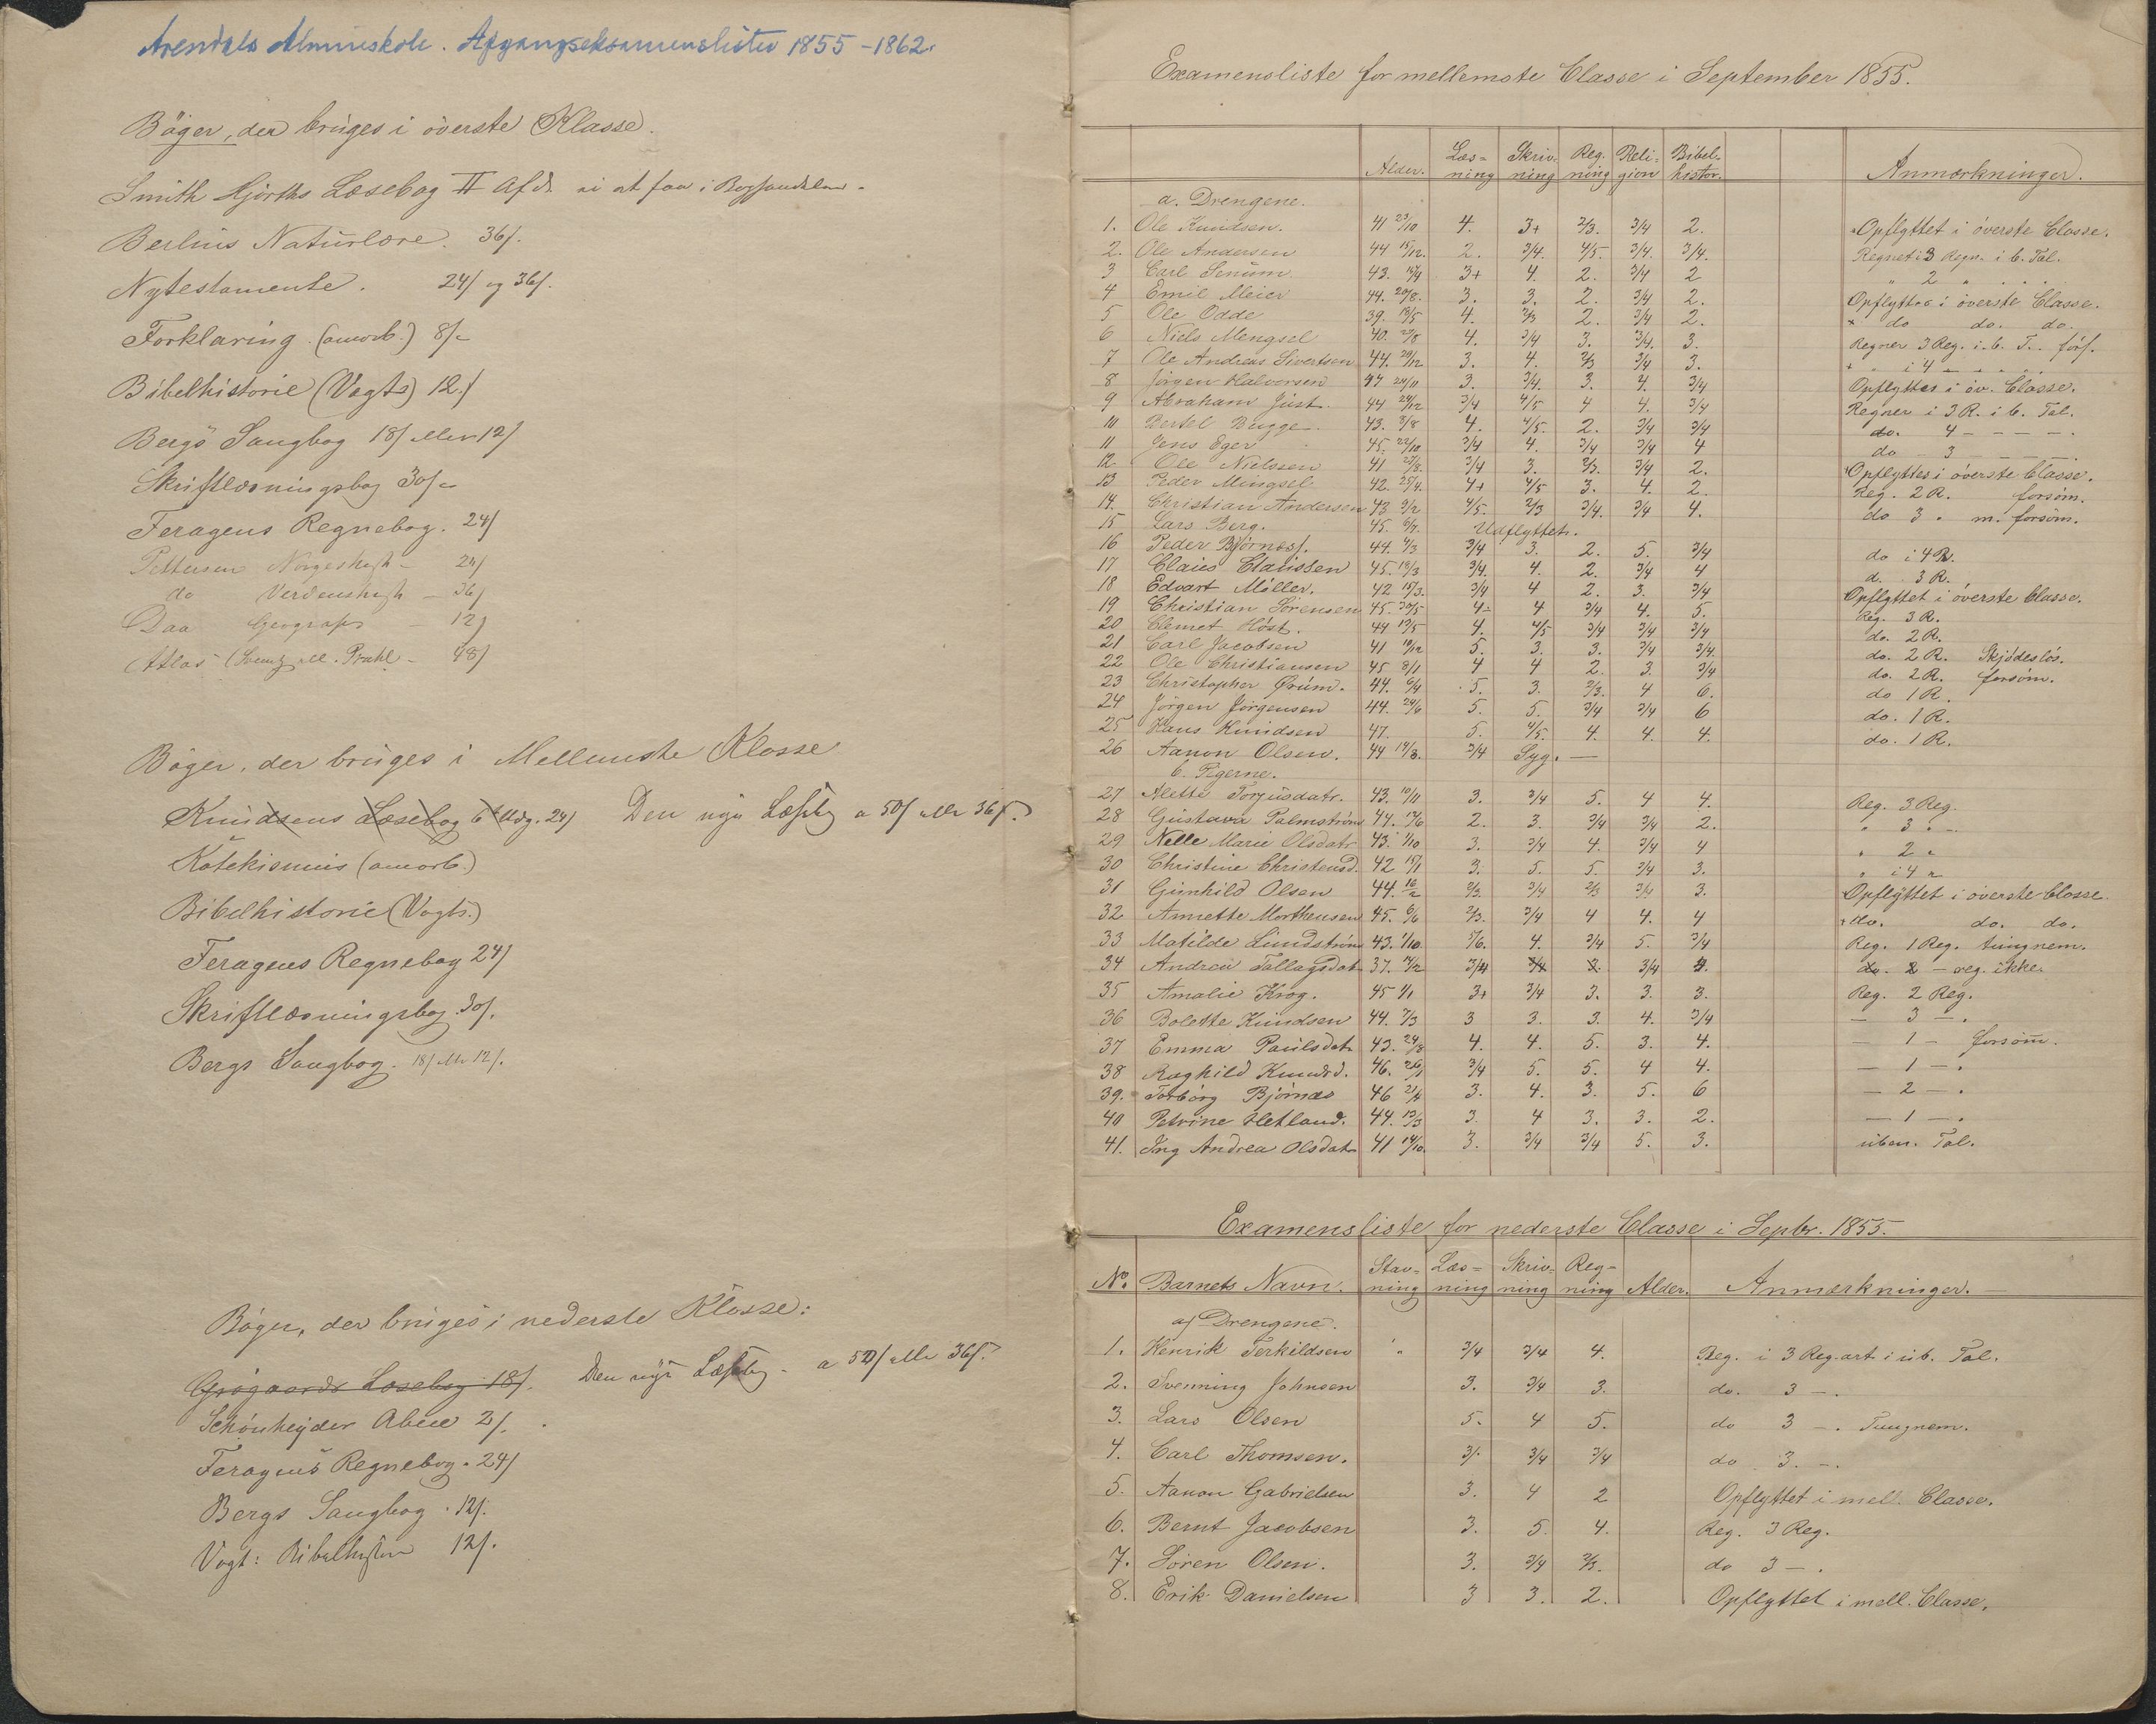 Arendals Almueskole. Afgangseksamenslister 1855-1862.
Böger, der bruges i överste Klasse.
Smith Hjorths Læsebog II Afd. ei at faa i Boghandelen.
Berlins Naturlære. 36ſ.
Nytestamente. 24ſ og 36ſ.
Forklaring (amorb.) 8ſ
Bibelhistorie (Vogts) 12ſ
Bergs Sangbog 18ſ eller 12ſ
Skriftlæsningsbog 30ſ
Feragens Regnebog. 24ſ
Pettersens Norgeshist. 24ſ
do Verdenshist 36ſ
Daa Geografi 12ſ
Atlas 48ſ
Böger, der bruges i Mellemste Klasse
Knudsens Læsebog 6t Udg. 24ſ Den nye Læseb. a 50ſ eller 36ſ.
Katekismus (amorb.)
Bibelhistorie (Vogts.)
Feragens Regnebog 24ſ
Skriftlæsningsbog. 30ſ.
Bergs Sangbog. 18ſ eller 12ſ.
Böger, der bruges i nederste Klasse:
Grögaards Læsebog 18ſ. Den nye Læseb. a 50ſ eller 36ſ.
Schönheyder Abece 2ſ.
Feragens Regnebog. 24ſ
Bergs Sangbog. 12ſ.
Vogt: Bibelhistorie 12ſ.
Examensliste for mellemste Classe i September 1855.
Alder. Læs=ning Skriv=ning Reg.ning Reli=gion Bibel.histor. Anmærkninger.
a. Drengene.
1. Ole Knudsen. 41 23/10 4. 3+ 2/3. 3/4 2. Opflyttet i överste Classe.
2. Ole Andersen 44 15/12. 2. 3/4. 4/5. 3/4. 3/4. Regnet i 3 Regn. i b. Tal.
3 Carl 43. 3+ 4. 2. 3/4 2 " 2 "
4 Emil Meier 44. 20/8. 3. 3. 2. 3/4 2. Opflyttes i överste Classe.
5 Ole Odde 39. 18/5 4. 2/3 2. 3/4 2. + do do. do.
6 Niels Mengsel 40. 4. 3/4 3. 3/4. 3. Regner 3 Reg. i b. T. förs.
7 Ole Andreas Sivertsen 44. 20/12 3. 4. 2/3 3/4 3. " i 4
8 Jörgen Halvorsen 47 24/11 3. 3/4. 3. 4. 3/4 Opflyttes i öv. Classe.
9 Abraham Just. 44 24/12 3/4 4/5 4 4. 3/4 Regner i 3 R. i b. Tal.
10 Bertel Bugge. 43. 3/8 4. 4/5. 2. 3/4 3/4 do. 4 - - - -.
11 Jens Eger 45. 22/10 3/4 4. 3/4 3/4 4 do - 3
12 Ole Nielssen 41 27/8. 3/4 3. 2/3. 3/4 2. Opflyttes i överste Classe.
13 Peder Mengsel 42. 25/4. 4+ 4/5 3. 4. 2. Reg. 2 R. forsöm.
14. Christian Andersen 43 9/2 4/5. 2/3 3/4. 3/4 4. do 3 " m. forsöm.
15 Lars Berg. 45. 6/7. Udflyttet.
16 Peder Björnæs. 44. 4/3 3/4 3. 2. 5. 3/4 do i 4 R.
17 Claies Claussen 45. 18/3 3/4. 4. 2. 3/4 4 d. 3 R.
18 Edvart Möller. 42 15/3. 3/4 4 2. 3. 3/4 Opflyttet i överste Classe.
19 Christian Sörensen 45. 30/5 4- 4 3/4 4. 5. Reg. 3 R.
20 Clemet Höst. 44 13/5 4. 4/5 3/4 3/4 3/4 do. 2 R.
21 Carl Jacobsen 41 10/12 5. 3. 3. 3/4 3/4. do. 2 R. Skjödeslös.
22 Ole Christiansen 45 8/1 4 4 2. 3. 3/4 do. 2 R. forsöm.
23 Christopher Örum. 44. 6/4 5. 3. 2/3. 4 6. do 1 R.
24 Jörgen Jörgensen 44. 24/6 5. 5. 3/4 3/4 6 do. 1 R.
25 Hans Knudsen 47. 5. 4/5. 4. 4. 4. do. 1 R.
26 Aanon Olsen. 44 19/3. 3/4 Syg. —
b. Pigerne.
27 Alette Torjusdatr. 43. 10/11 3. 3/4 5. 4 4. Reg. 3 Reg.
28 Gustava Palmström 44. 17/6 2. 3. 3/4 3/4 2. " 3 " -
29 Nelle Marie Olsdatr 43. 1/10 3. 3/4 4. 3/4 4 " 2 "
30 Christine Christensd. 42 15/1 3. 5. 5. 3/4 3. " i 4 "
31 Gunhild Olsen 44. 16/2 2/3. 3/4 2/3 3/4 3. Opflyttet i överste Classe.
32 Annette Morthensen 45. 6/6 2/3. 3/4 4 4. 4 + do. do. do.
33 Matilde Lundström 43. 1/10 5/6. 4. 3/4 5. 3/4 Reg. 1 Reg. tungnem.
34 Andrea Tallagsdat 37. 14/2 3/4 3/4 2. 3/4 4. do. 2 - reg. ikke.
35 Amalie Krog. 45 1/1 3+ 3/4 3. 3. 3. Reg. 2 Reg.
36 Bolette Knudsen 44. 7/3 3 3. 3. 4. 3/4 — 3 —.
37 Emma Paulsdat. 43. 24/8 4. 4. 5. 3. 4. — 1 — forsöm.
38 Raghild Knudsd. 46. 26/1 3/4 5. 5. 4 4. — 1 —.
39. Torborg Björnæs 46 21/4 3. 4. 3. 5. 6 — 2 —.
40 Petrine Hetland. 44. 13/3 3. 4 3. 3. 2. — 1 —.
41. Ing Andrea Olsdat 41 14/10. 3. 3/4 3/4 5. 3. uben. Tal.
Examensliste for nederste Classe i Septbr. 1855.
No. Barnets Navn. Stav=ning Læs=ning Skriv=ning Reg=ning Alder. Anmærkninger.
a) Drengene.
1. Henrik Terkildsen " 3/4 3/4 4. Reg. i 3 Reg.art. i ub. Tal.
2. Svenning Johnsen 3. 3/4 3. do. 3 —.
3. Lars Olsen 5. 4 5. do 3 —. Tungnem.
4. Carl Thomsen. 3/. 3/4 3/4 do 3. —.
5. Aanon Gabrielsen 3. 4 2 Opflyttet i mell. Classe.
6. Bernt Jacobsen 3. 5. 4. Reg. 3 Reg.
7. Sören Olsen. 3. 3/4 2/3. do 3 —.
8. Erik Danielsen 3 3. 2. Opflyttet i mell. Classe.